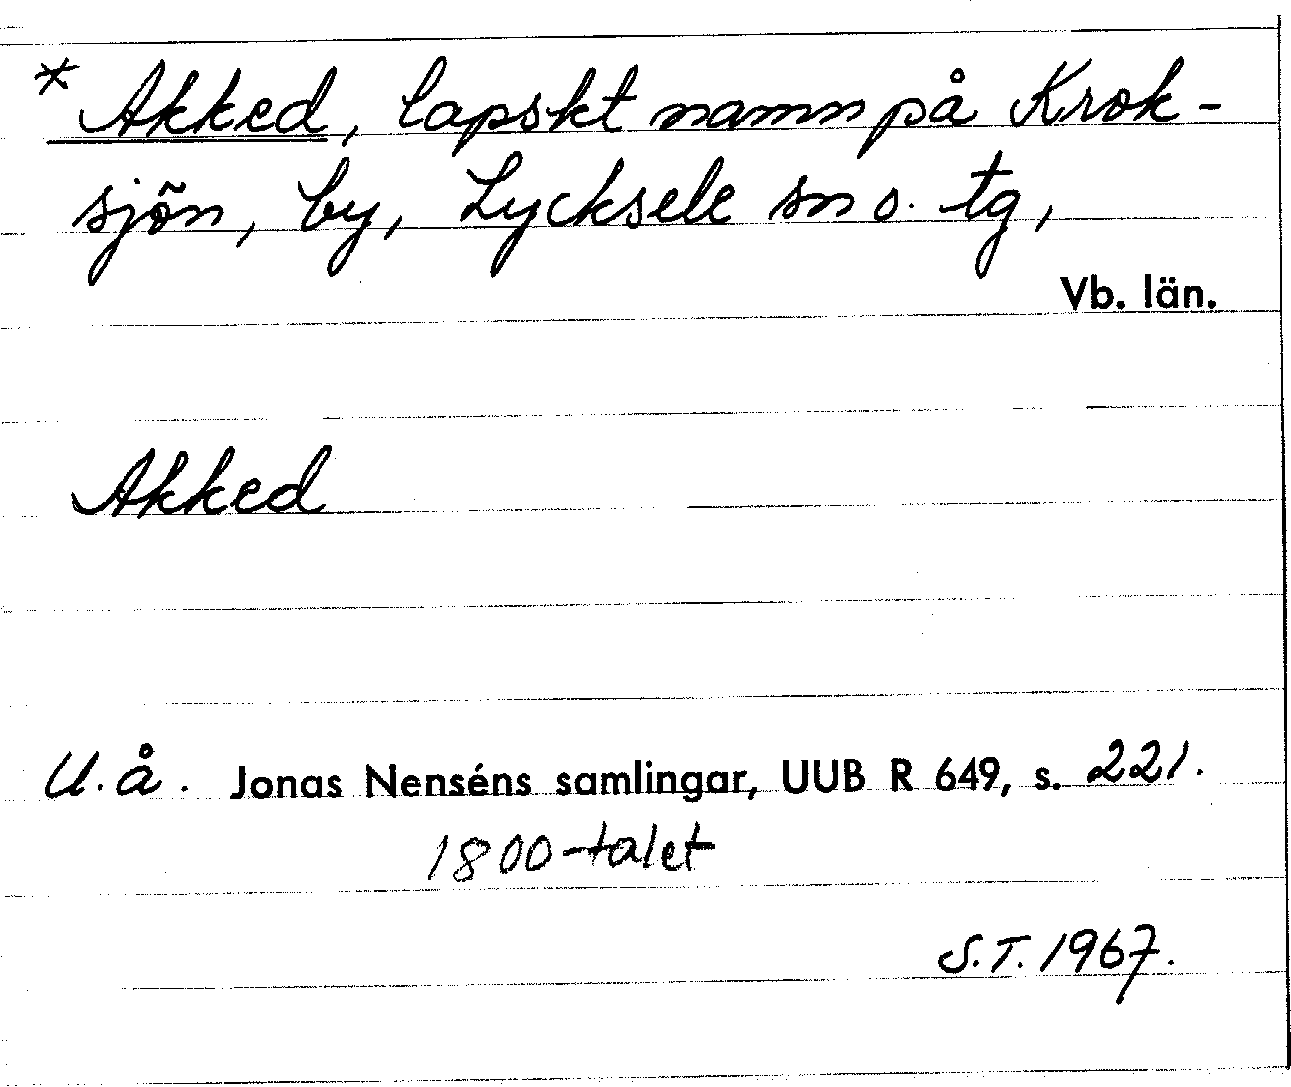 * Akked, lapskt namn på Krok-
sjön, by, Lycksele sn o. tg,
Vb. län.
Akked
U. å. Jonas Nenséns samlingar, UUB R 649, s. 221.
1800-talet
S.T. 1967.